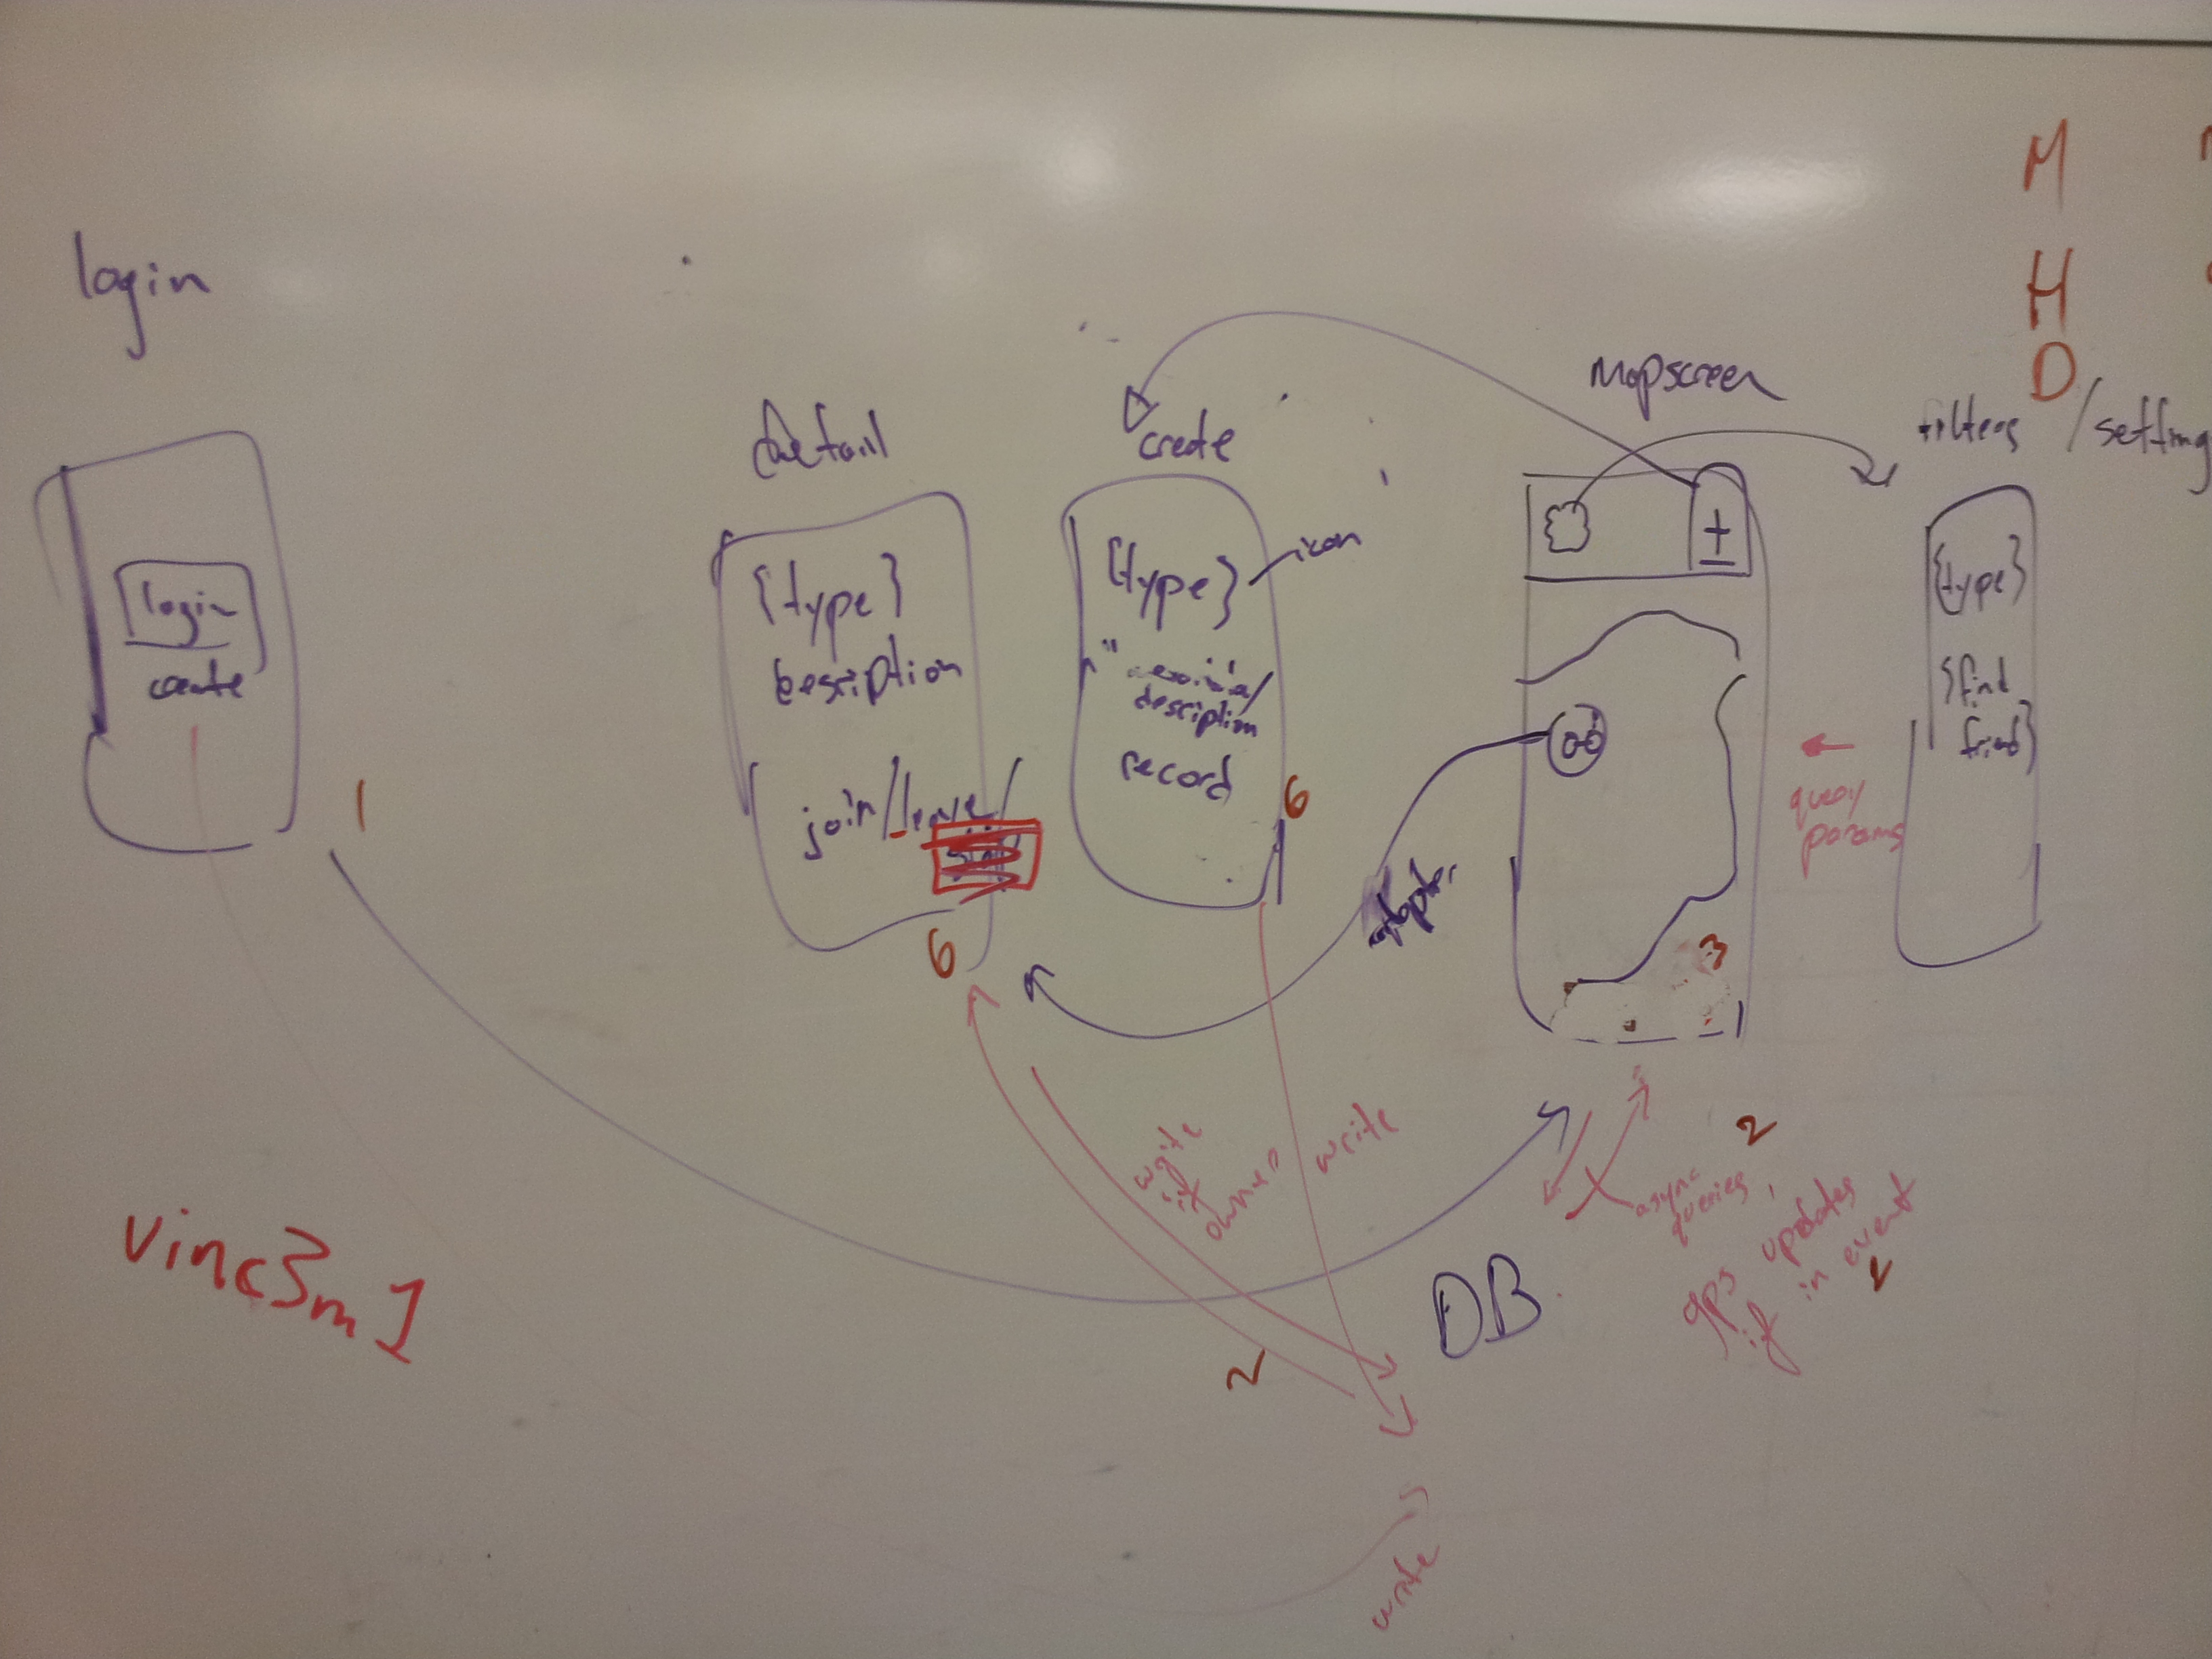 login
login
create
1
detail
{type}
Desription
join/leave/
6
create
{type}
icon
description
record
6
Mapscreen
+
3
filters /setting
{type}
{find
friend}
query
params
M
H
D
write
if
owner
write
2
DB
2
async
queries,
gps updates
if in event
2
write
vinc3m1